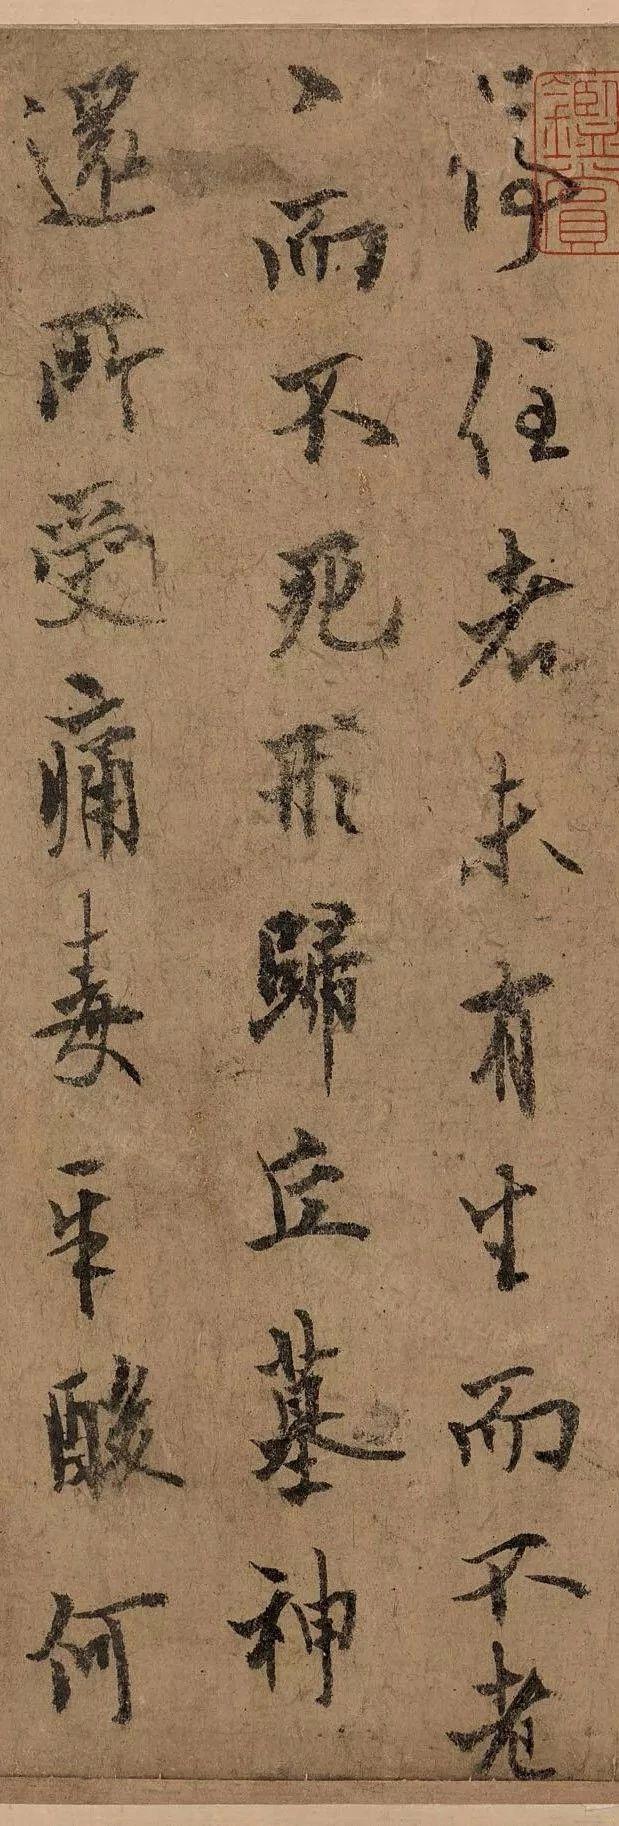 停住者未有生而不老
〻而不死形歸丘墓神
還所受痛毒辛酸何